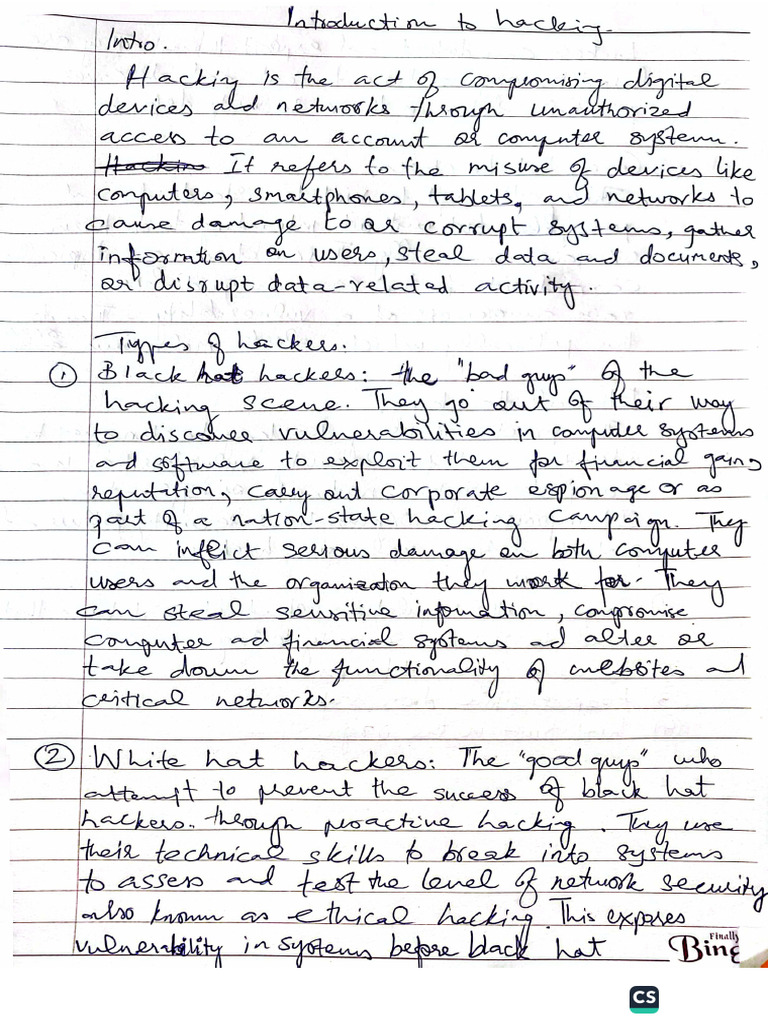 Introduction to hacking.
Intro.
Hacking is the act of compromising digital
devices and networks through unauthorized
access to an account or computer system.
Hackin It refers to the misuse of devices like
computers, smartphones, tablets, and networks to
cause damage to or corrupt systems, gather
information on users, steal data and documents,
or disrupt data-related activity.
Types of hackers.
① Black hat hackers: the "bad guys" of the
hacking scene. They go out of their way
to discover vulnerabilities in computer systems
and software to exploit them for financial gain,
reputation, carry out corporate espionage or as
part of a nation-state hacking campaign. They
can inflict serious damage on both computer
users and the organization they work for. They
can steal sensitive information, compromise
computer ad financial systems ad alter or
take down the functionality of websites and
critical networks.
② White hat hackers: The "good guys" who
attempt to prevent the success of black hat
hackers. through proactive hacking. They use
their technical skills to break into systems
to assess and test the level of network security
also known as ethical hacking. This exposes
vulnerability in systems before black hat
Finally
Bing
CS